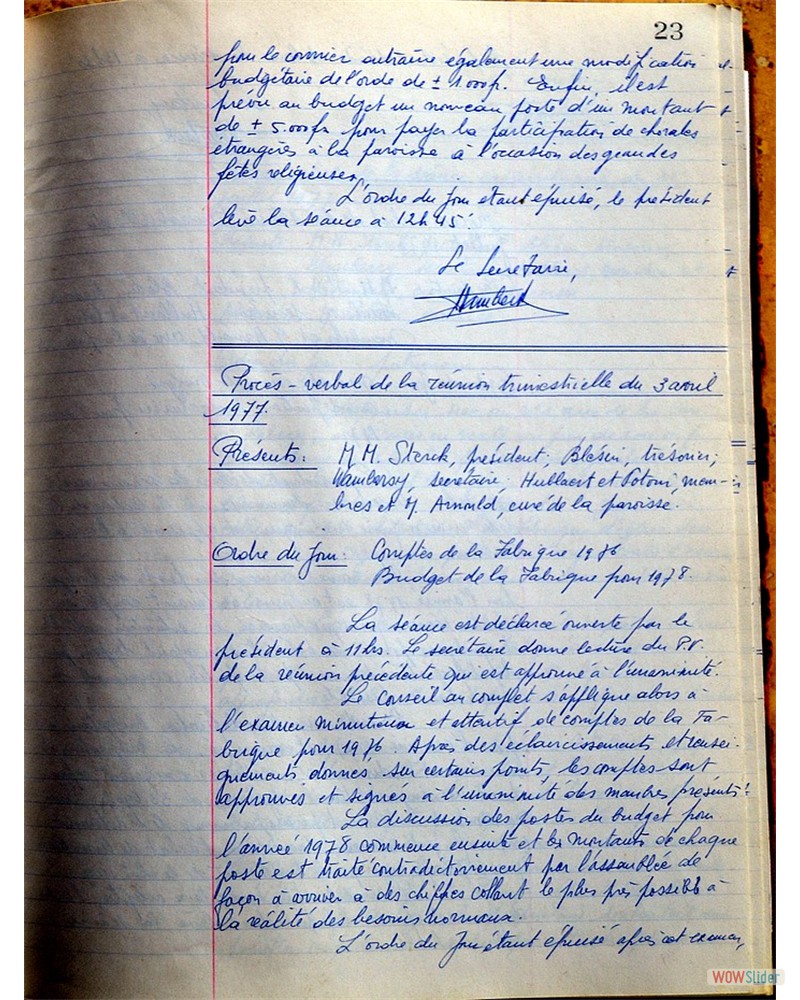 23
pour le courrier entraîne également une modification
budgétaire de l'orde de ± 1.000fr. Enfin, il est
prévu au budget un nouveau poste d'un montant
de ± 5.000fr pour payer la participation de chorales
étrangères à la paroisse à l'occasion des grandes
fêtes religieuses.
L'ordre du jour étant épuisé, le président
lève la séance à 12h45.
Le Secrétaire,
Procès-verbal de la réunion trimestrielle du 3 avril
1977.
Présents: MM. Sterck, président; Blésin, trésorier;
Wambersy, secrétaire; Hubbaert et Potoni, mem-
bres et M. Arnould, curé de la paroisse.
Ordre du Jour: Comptes de la Fabrique 1976
Budget de la Fabrique pour 1978.
La séance est déclarée ouverte par le
président à 11hrs. Le secrétaire donne lecture du P.V.
de la réunion précédente qui est approuvé à l'unanimité.
Le Conseil au complet s'applique alors à
l'examen minutieux et attentif de comptes de la Fa-
brique pour 1976. Après des éclaircissements et rensei-
gnements donnés, sur certains points, les comptes sont
approuvés et signés à l'unanimité des membres présents.
La discussion des postes du budget pour
l'année 1978 commence ensuite et les montants de chaque
poste est traité contradictoirement par l'assemblée de
façon à arriver à des chiffres collant le plus près possible à
la réalité des besoins normaux.
L'ordre du Jour étant épuisé après cet examen,
WOWSlider